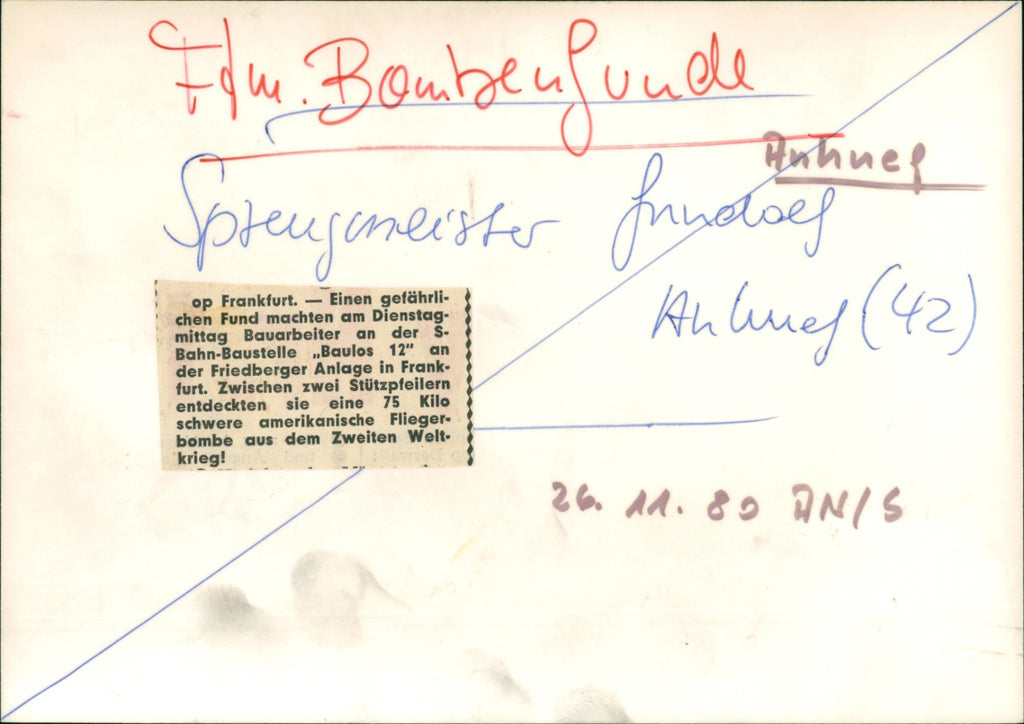 Ffm. Bombenfunde
Anhuef
Sprengmeister
(42)
op Frankfurt. — Einen gefährli-
chen Fund machten am Dienstag-
mittag Bauarbeiter an der S-
Bahn-Baustelle „Baulos 12" an
der Friedberger Anlage in Frank-
furt. Zwischen zwei Stützpfeilern
entdeckten sie eine 75 Kilo
schwere amerikanische Flieger-
bombe aus dem Zweiten Welt-
krieg!
26. 11. 80 AN/S